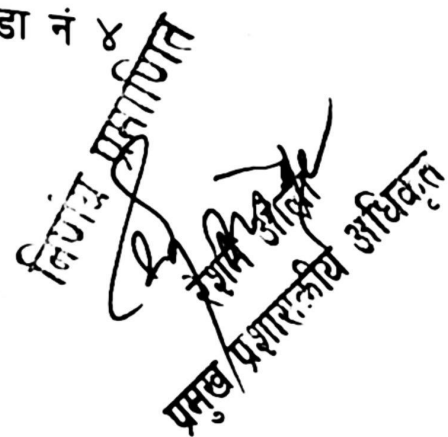 डा नं ४
निर्णय प्रमाणित
रेशमी ओली
प्रमुख प्रशासकीय अधिकृत